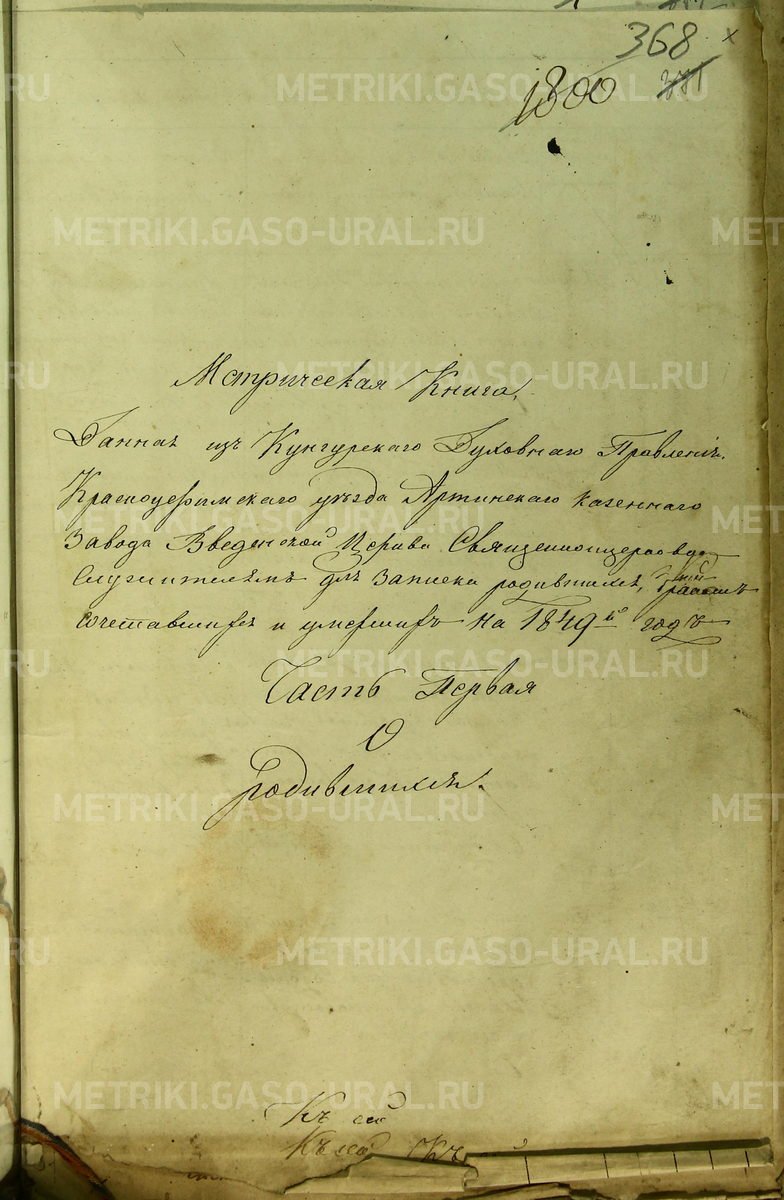 368 x
1800 371
Метрическая Книга,
Данная изъ Кунгурскаго Духовнаго Правленія
Красноуфимскаго уѣзда Артинскаго казеннаго
Завода Введенской Церкви Священноцерковно
служителямъ для записки родившихся, бракомъ
сочетавшихся и умершихъ на 1849й годъ
Часть Первая
О
родившихся.
Къ сей
METRIKI.GASO-URAL.RU